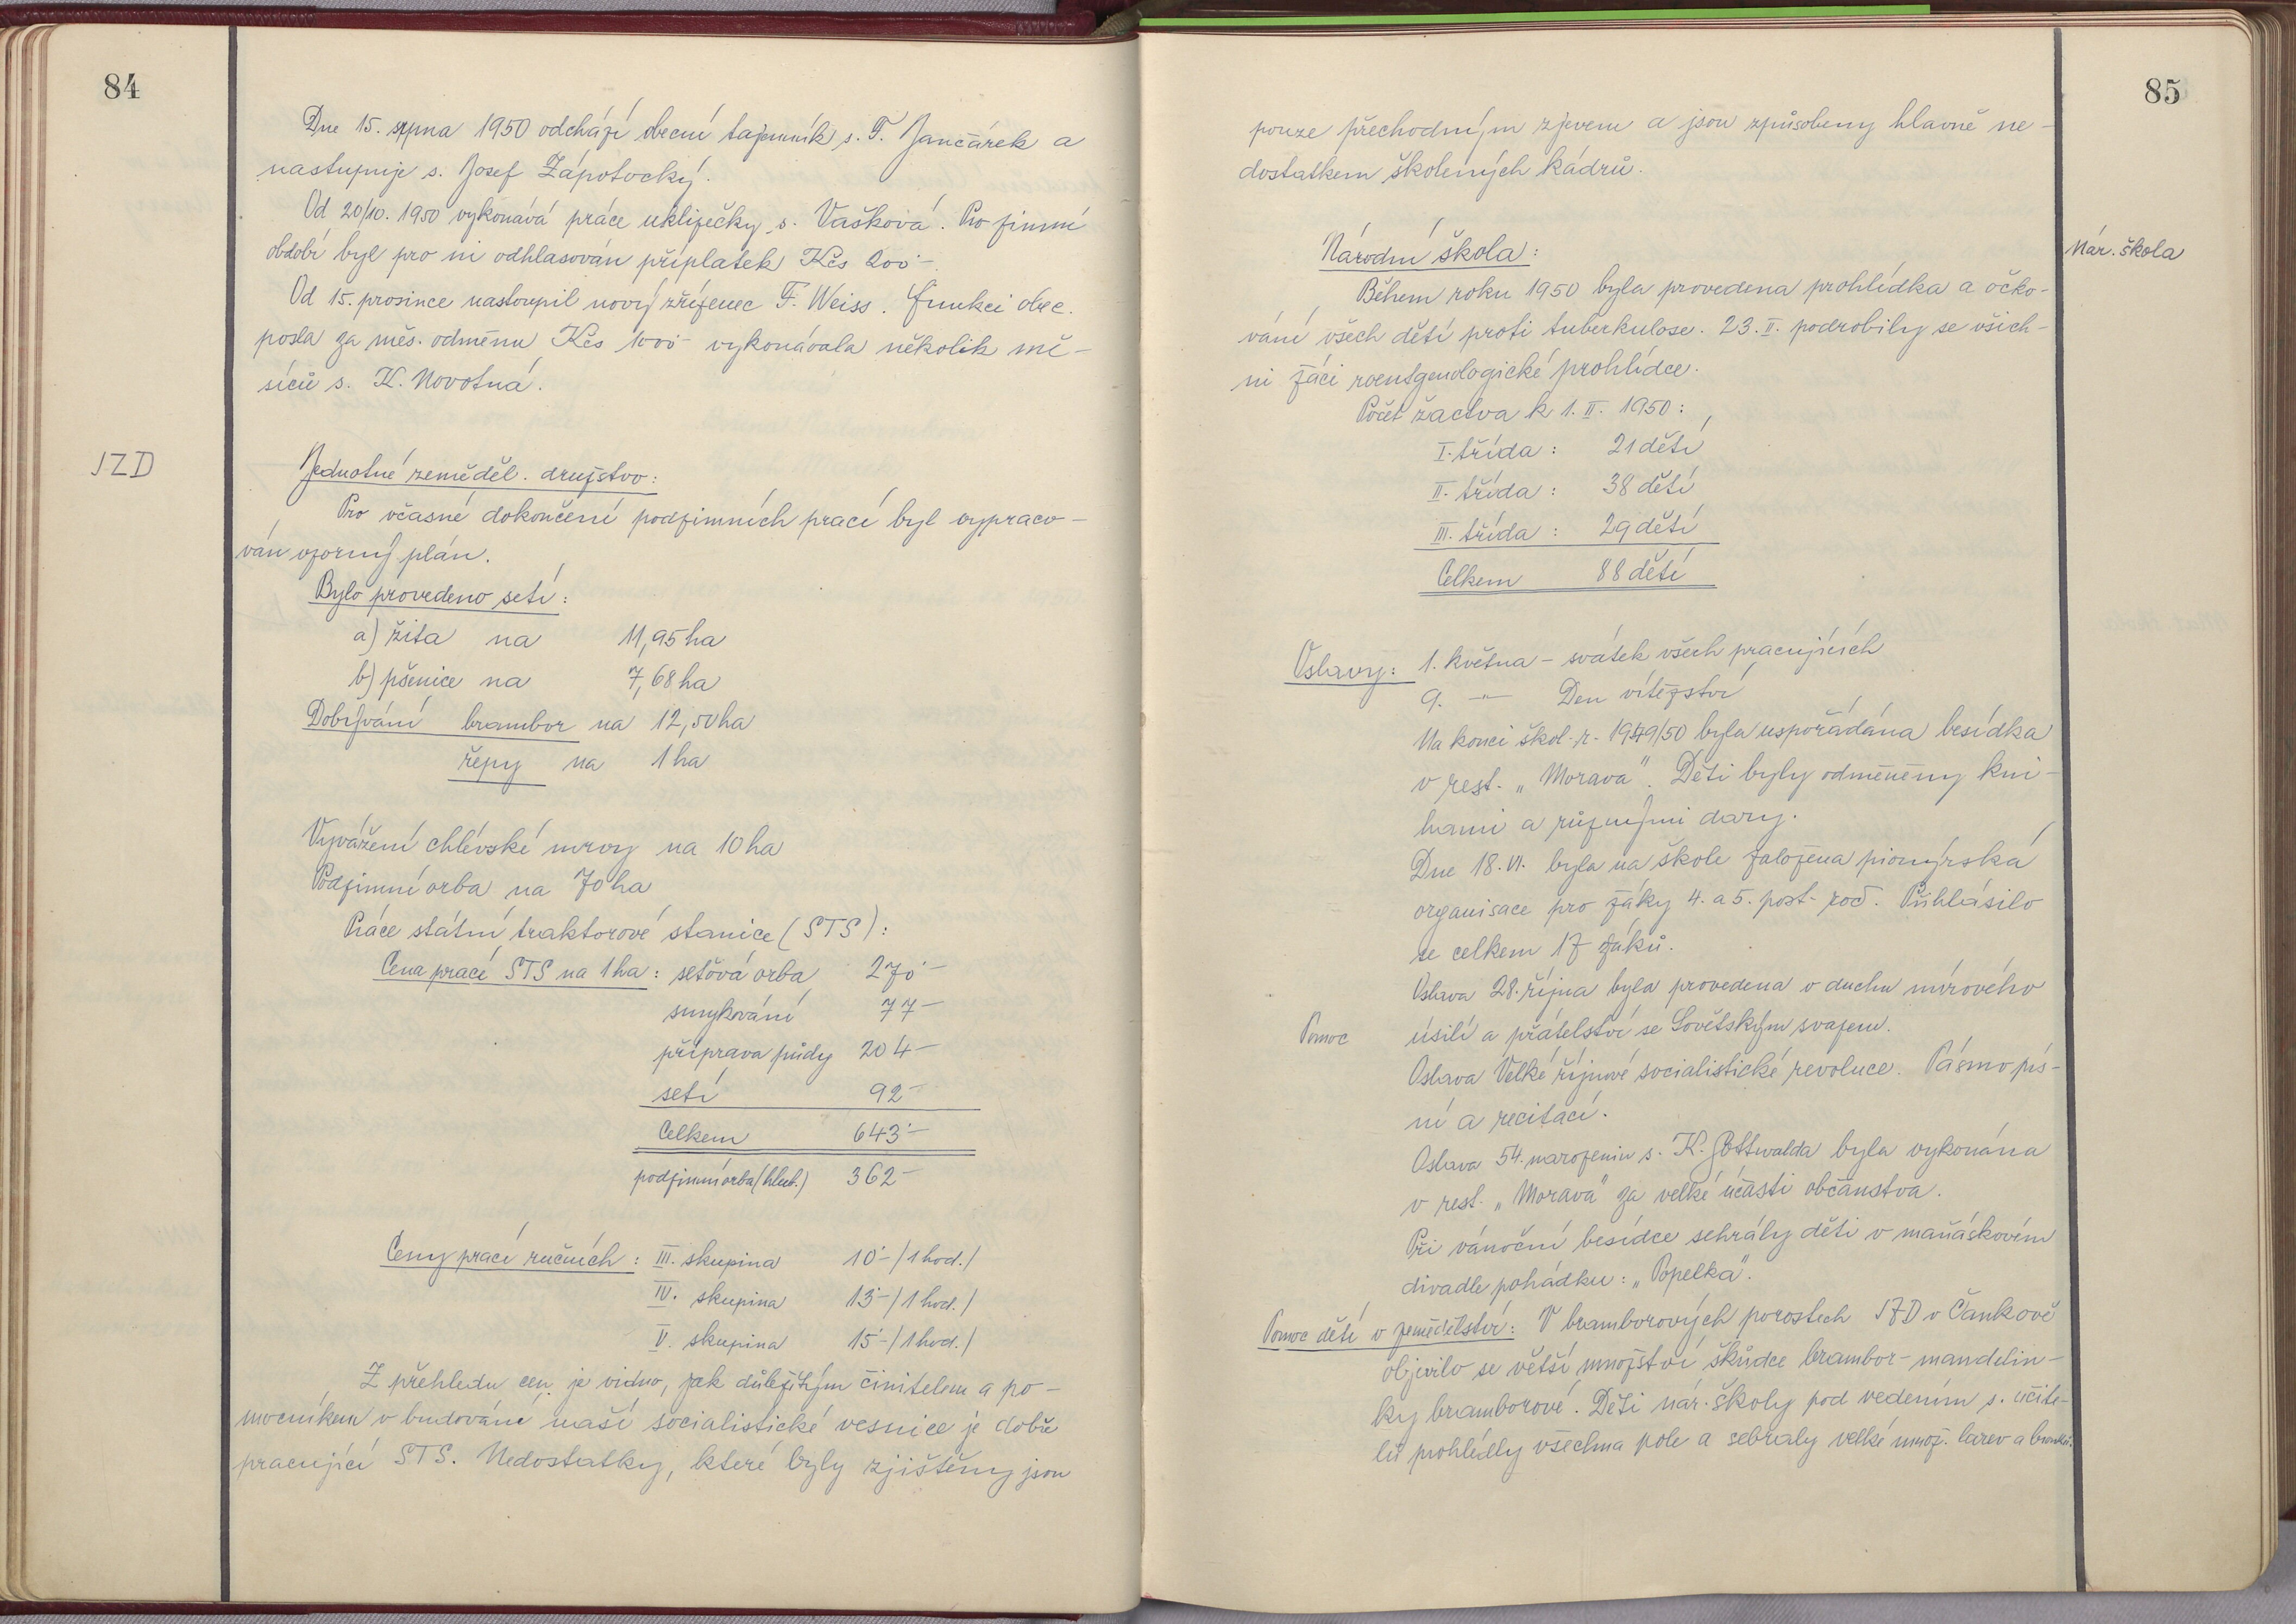 84
Dne 15. srpna 1950 odchází obecní tajemník s. F. Jančárek a
nastupuje s. Josef Zápotocký.
Od 20/10. 1950 vykonává práce uklízečky s. Vašková. Pro zimní
období byl pro ni odhlasován příplatek Kčs 200·-
Od 15. prosince nastoupil nový zřízenec F. Weiss. Funkci obec.
posla za měs. odměnu Kčs 1000·- vykonávala několik mě-
síců s. K. Novotná.
JZD
Jednotné zeměděl. družstvo:
Pro včasné dokončení podzimních prací byl vypraco-
ván ozorný plán.
Bylo provedeno setí:
a) žita na 11,95 ha
b) pšenice na 7,68 ha
Dobývání brambor na 12,50 ha
řepy na 1 ha
Vyvážení chlévské mrvy na 10 ha
Podzimní orba na 70 ha
Práce státní traktorové stanice (STS):
Cena prací STS na 1 ha: seťová orba 270·-
smykování 77-
příprava půdy 204-
setí 92-
Celkem 643·-
podzimní orba (hlub.) 362-
Ceny prací ručních: III. skupina 10·- /1 hod./
IV. skupina 13·- /1 hod./
V. skupina 15·- /1 hod./
Z přehledu cen je vidno, jak důležitým činitelem a po-
mocníkem v budování naší socialistické vesnice je dobře
pracující STS. Nedostatky, které byly zjištěny jsou
85
pouze přechodným zjevem a jsou způsobeny hlavně ne-
dostatkem školených kádrů.
Národní škola:
Nár. škola
Během roku 1950 byla provedena prohlídka a očko-
vání všech dětí proti tuberkulose. 23. II. podrobily se všich-
ni žáci roentgenologické prohlídce.
Počet žactva k 1. II. 1950:
I. třída: 21 dětí
II. třída: 38 dětí
III. třída: 29 dětí
Celkem 88 dětí
Oslavy: 1. května - svátek všech pracujících
9. -"- Den vítězství
Na konci škol. r. 1949/50 byla uspořádána besídka
v rest. „Morava". Děti byly odměněny kni-
hami a různými dary.
Dne 18. VI. byla na škole založena pionýrská
organisace pro žáky 4. a 5. post. roč. Přihlásilo
se celkem 17 žáků.
Oslava 28. října byla provedena v duchu mírového
Pomoc
úsilí a přátelství se Sovětským svazem.
Oslava Velké říjnové socialistické revoluce. Pásmo pís-
ní a recitací.
Oslava 54. narozenin s. K. Gottwalda byla vykonána
v rest. „Morava" za velké účasti občanstva.
Při vánoční besídce sehrály děti v maňáskovém
divadle pohádku: „Popelka".
Pomoc dětí v zemědělství: V bramborových porostech JZD v Čankově
objevilo se větší množství škůdce brambor - mandelin-
ky bramborové. Děti nár. školy pod vedením s. učite-
lů prohlédly všechna pole a sebraly velké množ. larev a